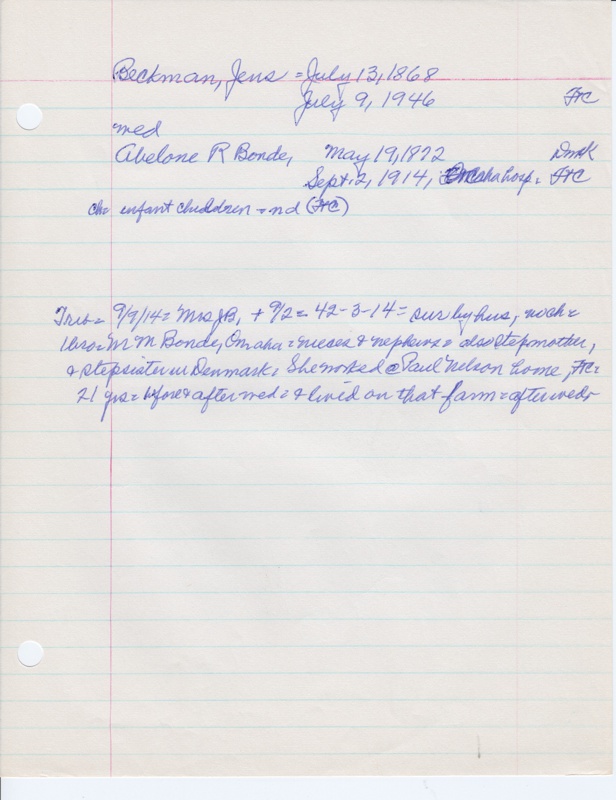 Beckman, Jens = July 13, 1868
July 9, 1946 FtC
wed
Abelone R Bonde, May 19, 1872 Dmk
Sept. 2, 1914, Omaha hosp. FtC
ch = infant children = nd (FtC)
Trib = 9/9/14 = Mrs JB, + 9/2 = 42-3-14 = sur by hus, no ch =
1 bro = Mr M Bonde, Omaha = nieces & nephews = also stepmother,
& stepsister in Denmark = She worked @ Paul Nelson home, FtC =
21 yrs = before & after wed = & lived on that farm = after wed